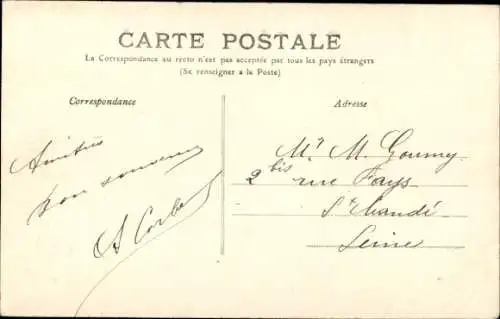 CARTE POSTALE
La Correspondance au recto n'est pas acceptée par tous les pays étrangers
(Se renseigner à la Poste)
Correspondance
Adresse
Amitiés
bon souvenir
A Corbe
Mr M. Goumy
2 bis rue Fays
St Mandé
Seine